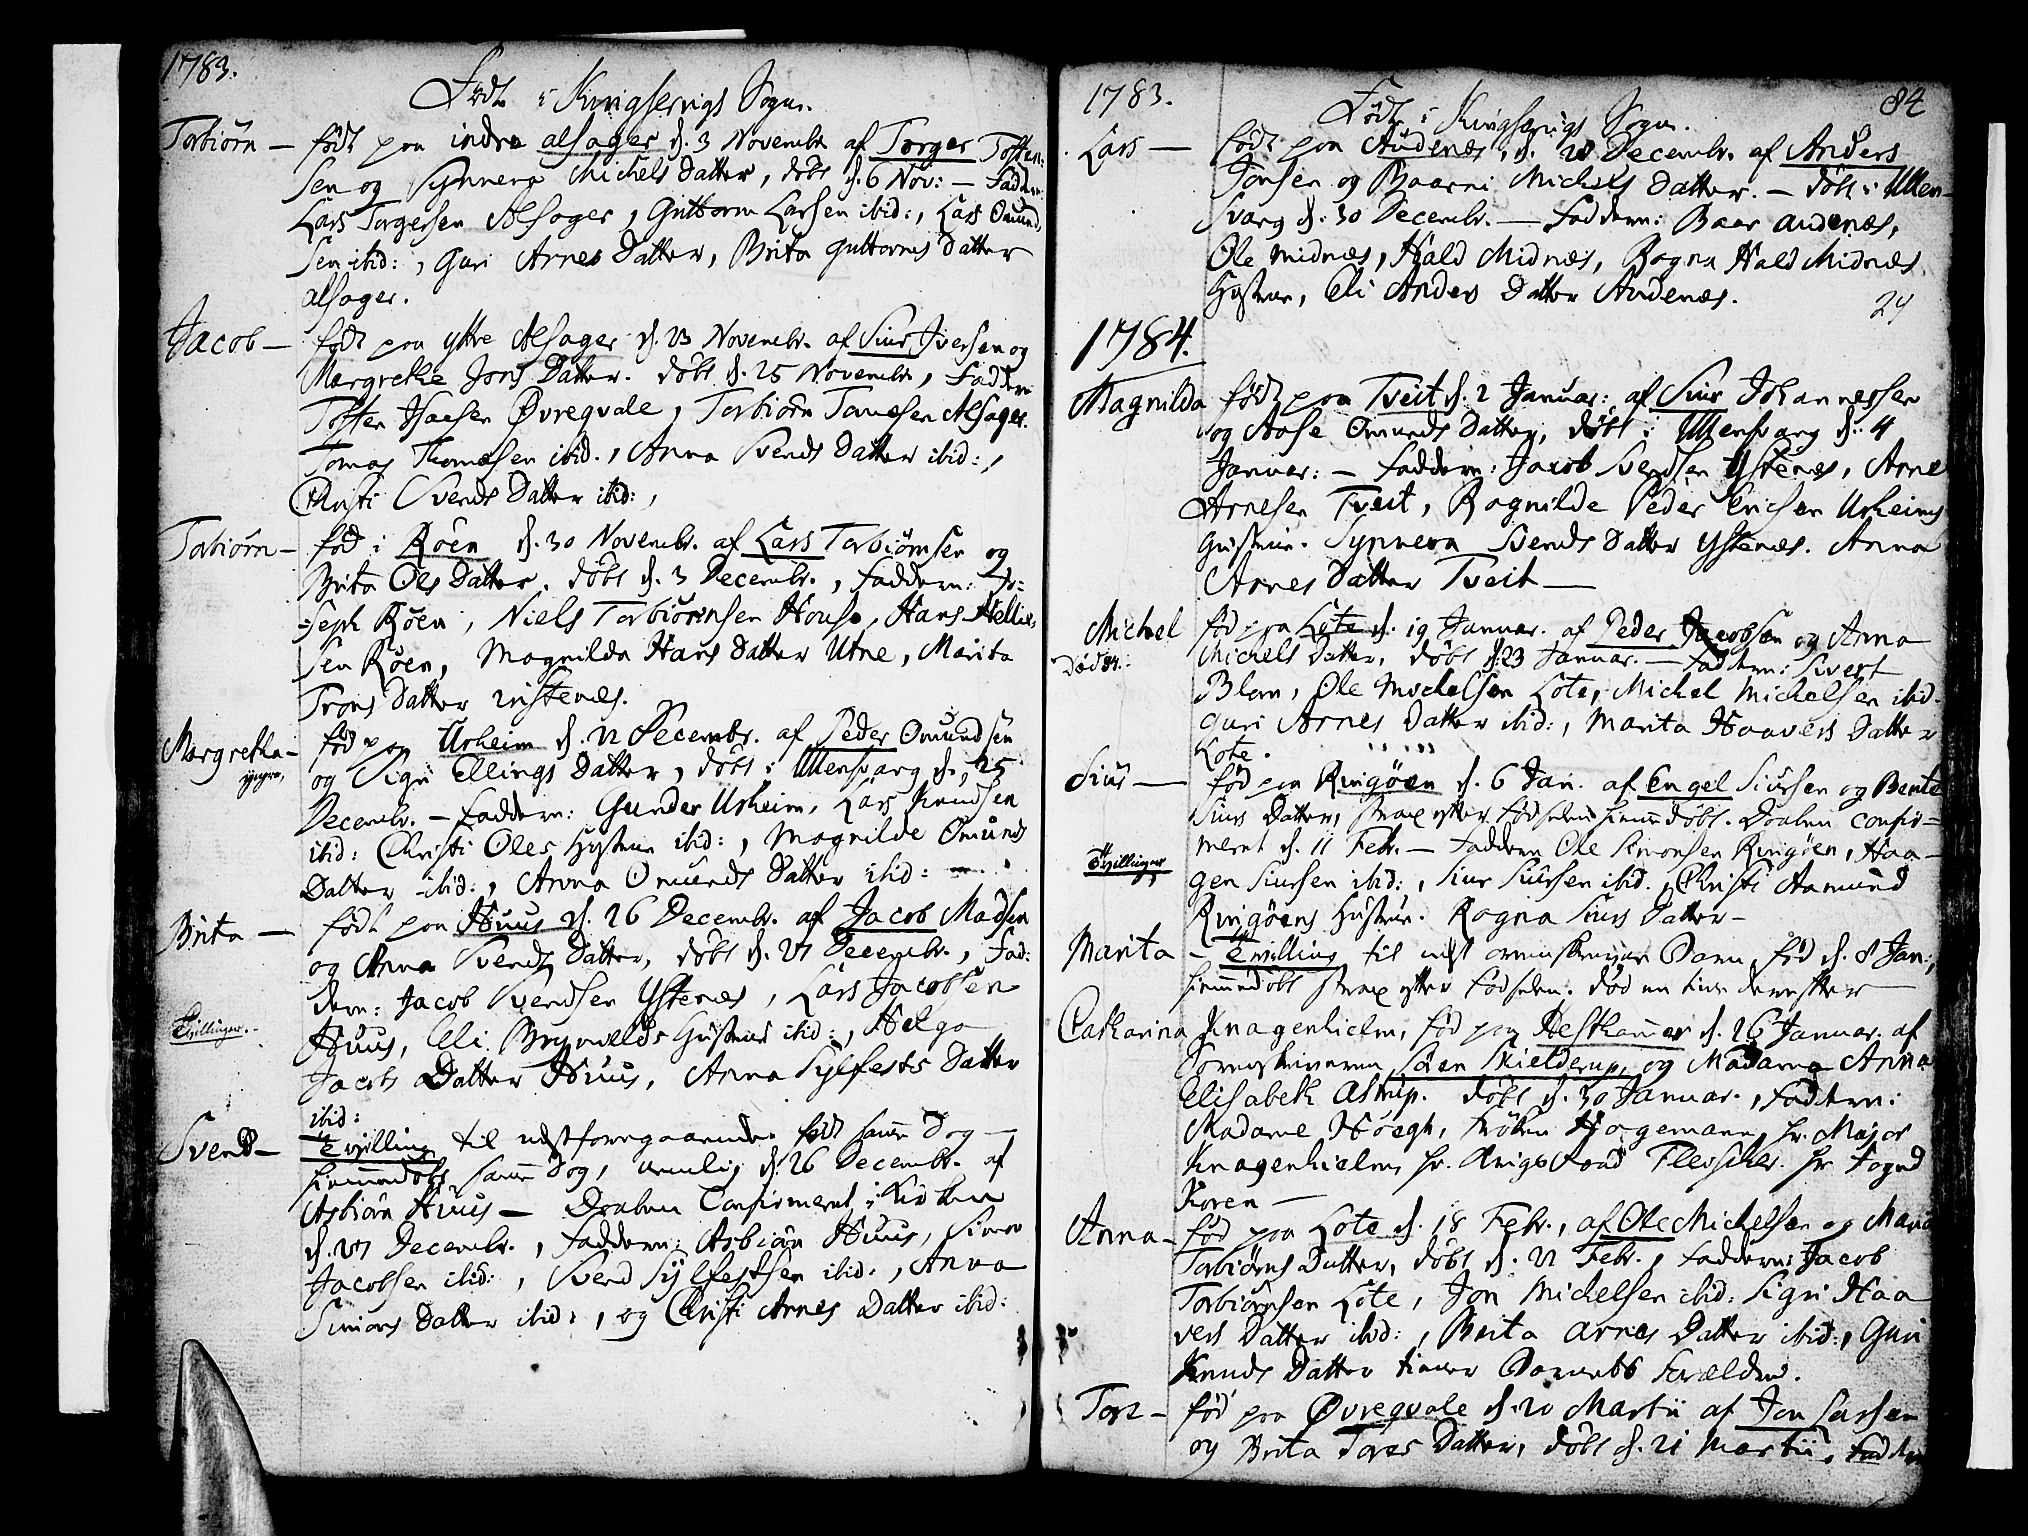 1783.
Födt i Kingservigs Sogn.
Torbiörn — födt paa indre alsager d. 3 Novembr. af Torger Tosten-
sen og Synneva Michels Datter, döbt d. 6 Nov: — Faddere
Lars Torgersen Alsager, Guttorm Larsen ibid:, Lars Omund
sen ibid:, Guri Arnes Datter, Brita Guttorms Datter
alsager.
Jacob — födt paa ytre Alsager d. 23 Novembr. af Siur Iversen og
Margrethe Jons Datter. döbt d. 25 Novembr, Faddere
Tosten Isaksen Øvreqvale, Torbiörn Tomesen Alsager.
Tomas Thomesen ibid., Anna Svends Datter ibid:,
Christi Svends Datter ibid:,
Torbiörn — född i Röen d. 30 Novembr. af Lars Torbiörnsen og
Brita Ols Datter. döbt d. 3 Decembr., Faddere: Jo-
seph Röen, Niels Torbiörnsen House, Hans Hellie-
sen Röen, Magnilda Hans Datter Utne, Marita
Trons Datter Instenæs.
Margretha — föd paa Urheim d. 22 Decembr. af Peder Omundsen
yngre,
og Sigri Ellings Datter, döbt i Ullensvang d. 25
Decembr. — Faddere: Gunder Urheim, Lars Knudsen
ibid: Christi Oles Hustrue ibid:, Magnilde Omunds
Datter ibid:, Anna Omunds Datter ibid:
Brita — födt paa Huus d. 26 Decembr. af Jacob Madsen
og Anna Svends Datter, döbt d. 27 Decembr., Fad-
dere: Jacob Svendsen Ystenæs, Lars Jacobsen
Tvillinger.
Huus, Eli Brynvelds Hustrue ibid:, Helga
Jacobs Datter Huus, Anna Sylfests Datter
ibid:
Svend — Tvilling til næstforregaaende födt samme Dag —
hiemmedöbt samme Dag, nemlig d. 26 Decembr. af
Asbiörn Huus — Daaben Confirmeret i Kirken
d. 27 Decembr., Faddere: Asbiörn Huus, Simon
Jacobsen ibid:, Svend Sylfestsen ibid., Anna
Simons Datter ibid:, og Christi Arnes Datter ibid:
1783. 84
Födt i Kingservigs Sogn.
Lars — födt paa Audenæs, d. 28 Decembr. af Anders
Jonsen og Baarni Michels Datter. — döbt i Ullen-
svang d. 30 Decembr. — Faddere: Baar Audenæs,
Ole Midnæs, Hald Midnæs, Ragna Hald Midnæs
Hustrue, Eli Anders Datter Audenæs.
24
1784.
Magnilda födt paa Tveit d. 2 Januar: af Siur Johannessen
og Aase Omunds Datter, döbt i Ullensvang d. 4
Januar: — Faddere: Jacob Svendsen Ystenæs, Arne
Arnesen Tveit, Ragnilde Peder Ericsen Urheims
Hustrue. Synneva Svends Datter Ystenæs. Anna
Arnes Datter Tveit —
Michel föd paa Lote d. 19 Januar. af Peder Jacobsen og Anna
Michels Datter, döbt d. 23 Januar. — Faddere: Sivert
Blom, Ole Michelsen Lote, Michel Michelsen ibid.
Guri Arnes Datter ibid:, Marita Haavers Datter
Lote.
Siur — föd paa Ringöen d. 6 Jan. af Engel Siursen og Bente
Siurs Datter, strax efter Födselen hiemmedöbt. Daaben confir-
meret d. 11 Febr. — Faddere Ole Simonsen Ringöen, Haa-
Tvillinger
gen Siursen ibid:, Siur Siursen ibid., Christi Aamund
Ringöens Hustrue. Ragna Siurs Datter —
Marita — Tvilling til næst ommeldte Barn, föd d. 8 Jan:,
hiemmedöbt strax efter Födselen. död en time derefter —
Catharina Knagenhielm, föd paa Helskammer d. 26 Januar. af
Sorenskriveren Sören Skielderup, og Madame Anna
Elisabeth Astrup. döbt d. 30 Januar., Faddere:
Madame Höegh, Fröken Hagemann, hr. Major
Knagenhielm, hr. Krigsraad Fleischer. hr. Fogd
Koren —
Anna — föd paa Lote d. 18 Febr., af Ole Michelsen og Maria
Torbiörns Datter, döbt d. 22 Febr., Faddere: Jacob
Torbiörnsen Lote, Jon Michelsen ibid: Sigri Haa
vers Datter ibid:, Brita Arnes Datter ibid:, Guri
Knuds Datter tiener Barnets Forældre.
Tore — föd paa Øvreqvale d. 20 Martii af Jon Larsen
og Brita Tores Datter, döbt d. 21 Martii, Faddere